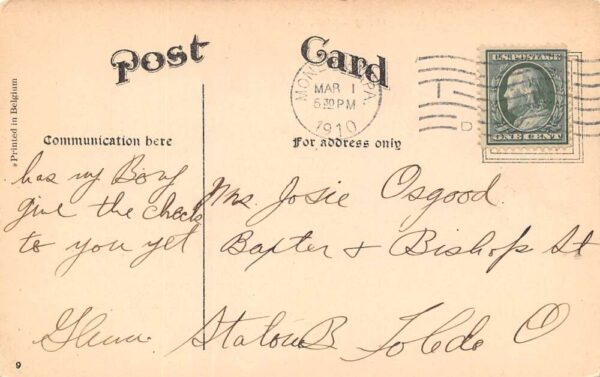 Post Card
MON PA.
MAR 1
5:30 PM
1910
U.S. POSTAGE
ONE CENT
Printed in Belgium
Communication here
For address only
has my Boy
give the check
to you yet
Glenn
Mrs. Josie Osgood.
Baxter + Bishop St
Station B Toledo O
9